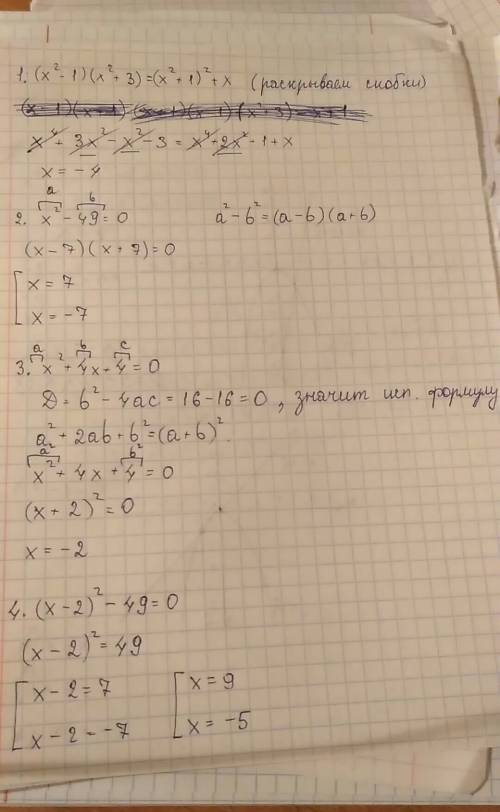 1. (x² - 1)(x² + 3) = (x² + 1)² + x (раскрываем скобки)
x⁴ + 3x² - x² - 3 = x⁴ + 2x² + 1 + x
x = -4
a b
2. x² - 49 = 0 a² - b² = (a - b)(a + b)
(x - 7)(x + 7) = 0
x = 7
x = -7
a b c
3. x² + 4x + 4 = 0
D = b² - 4ac = 16 - 16 = 0, значит исп. формулу
a² + 2ab + b² = (a + b)².
a² b²
x² + 4x + 4 = 0
(x + 2)² = 0
x = -2
4. (x - 2)² - 49 = 0
(x - 2)² = 49
x - 2 = 7 x = 9
x - 2 = -7 x = -5